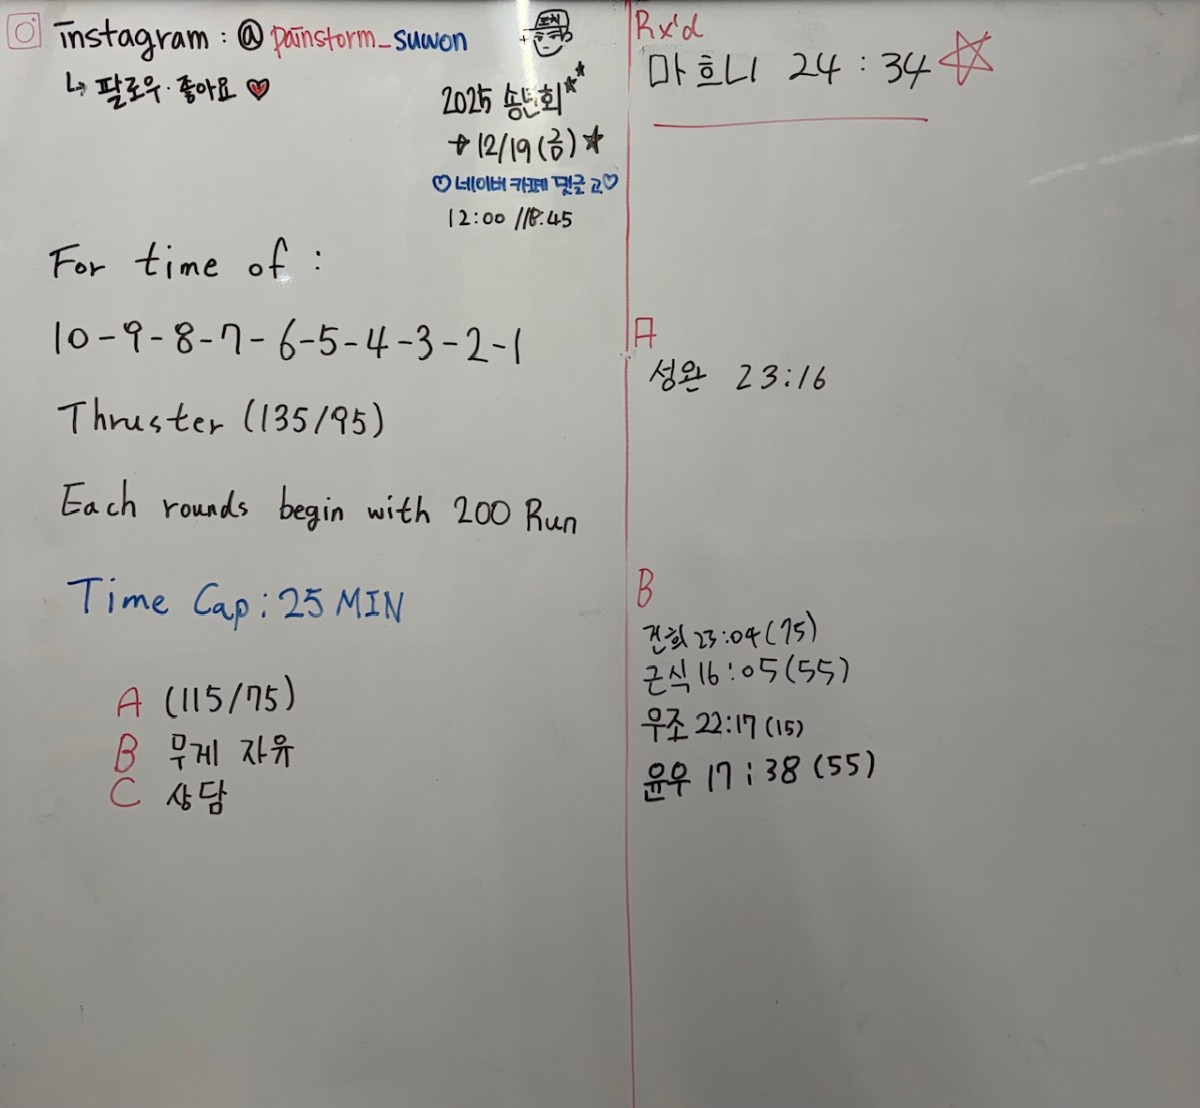 instagram : @ painstorm_suwon
↳ 팔로우·좋아요 ♥
2025 송년회
→ 12/19 (금) ★
♡네이버 카페 댓글 고♡
12:00 // 18:45
For time of :
10-9-8-7-6-5-4-3-2-1
Thruster (135/95)
Each rounds begin with 200 Run
Time Cap : 25 MIN
A (115/75)
B 무게 자유
C 상담
Rx'd
마흐니 24 : 34
A
성완 23:16
B
건희 23:04 (75)
근식 16:05 (55)
우조 22:17 (15)
윤우 17:38 (55)